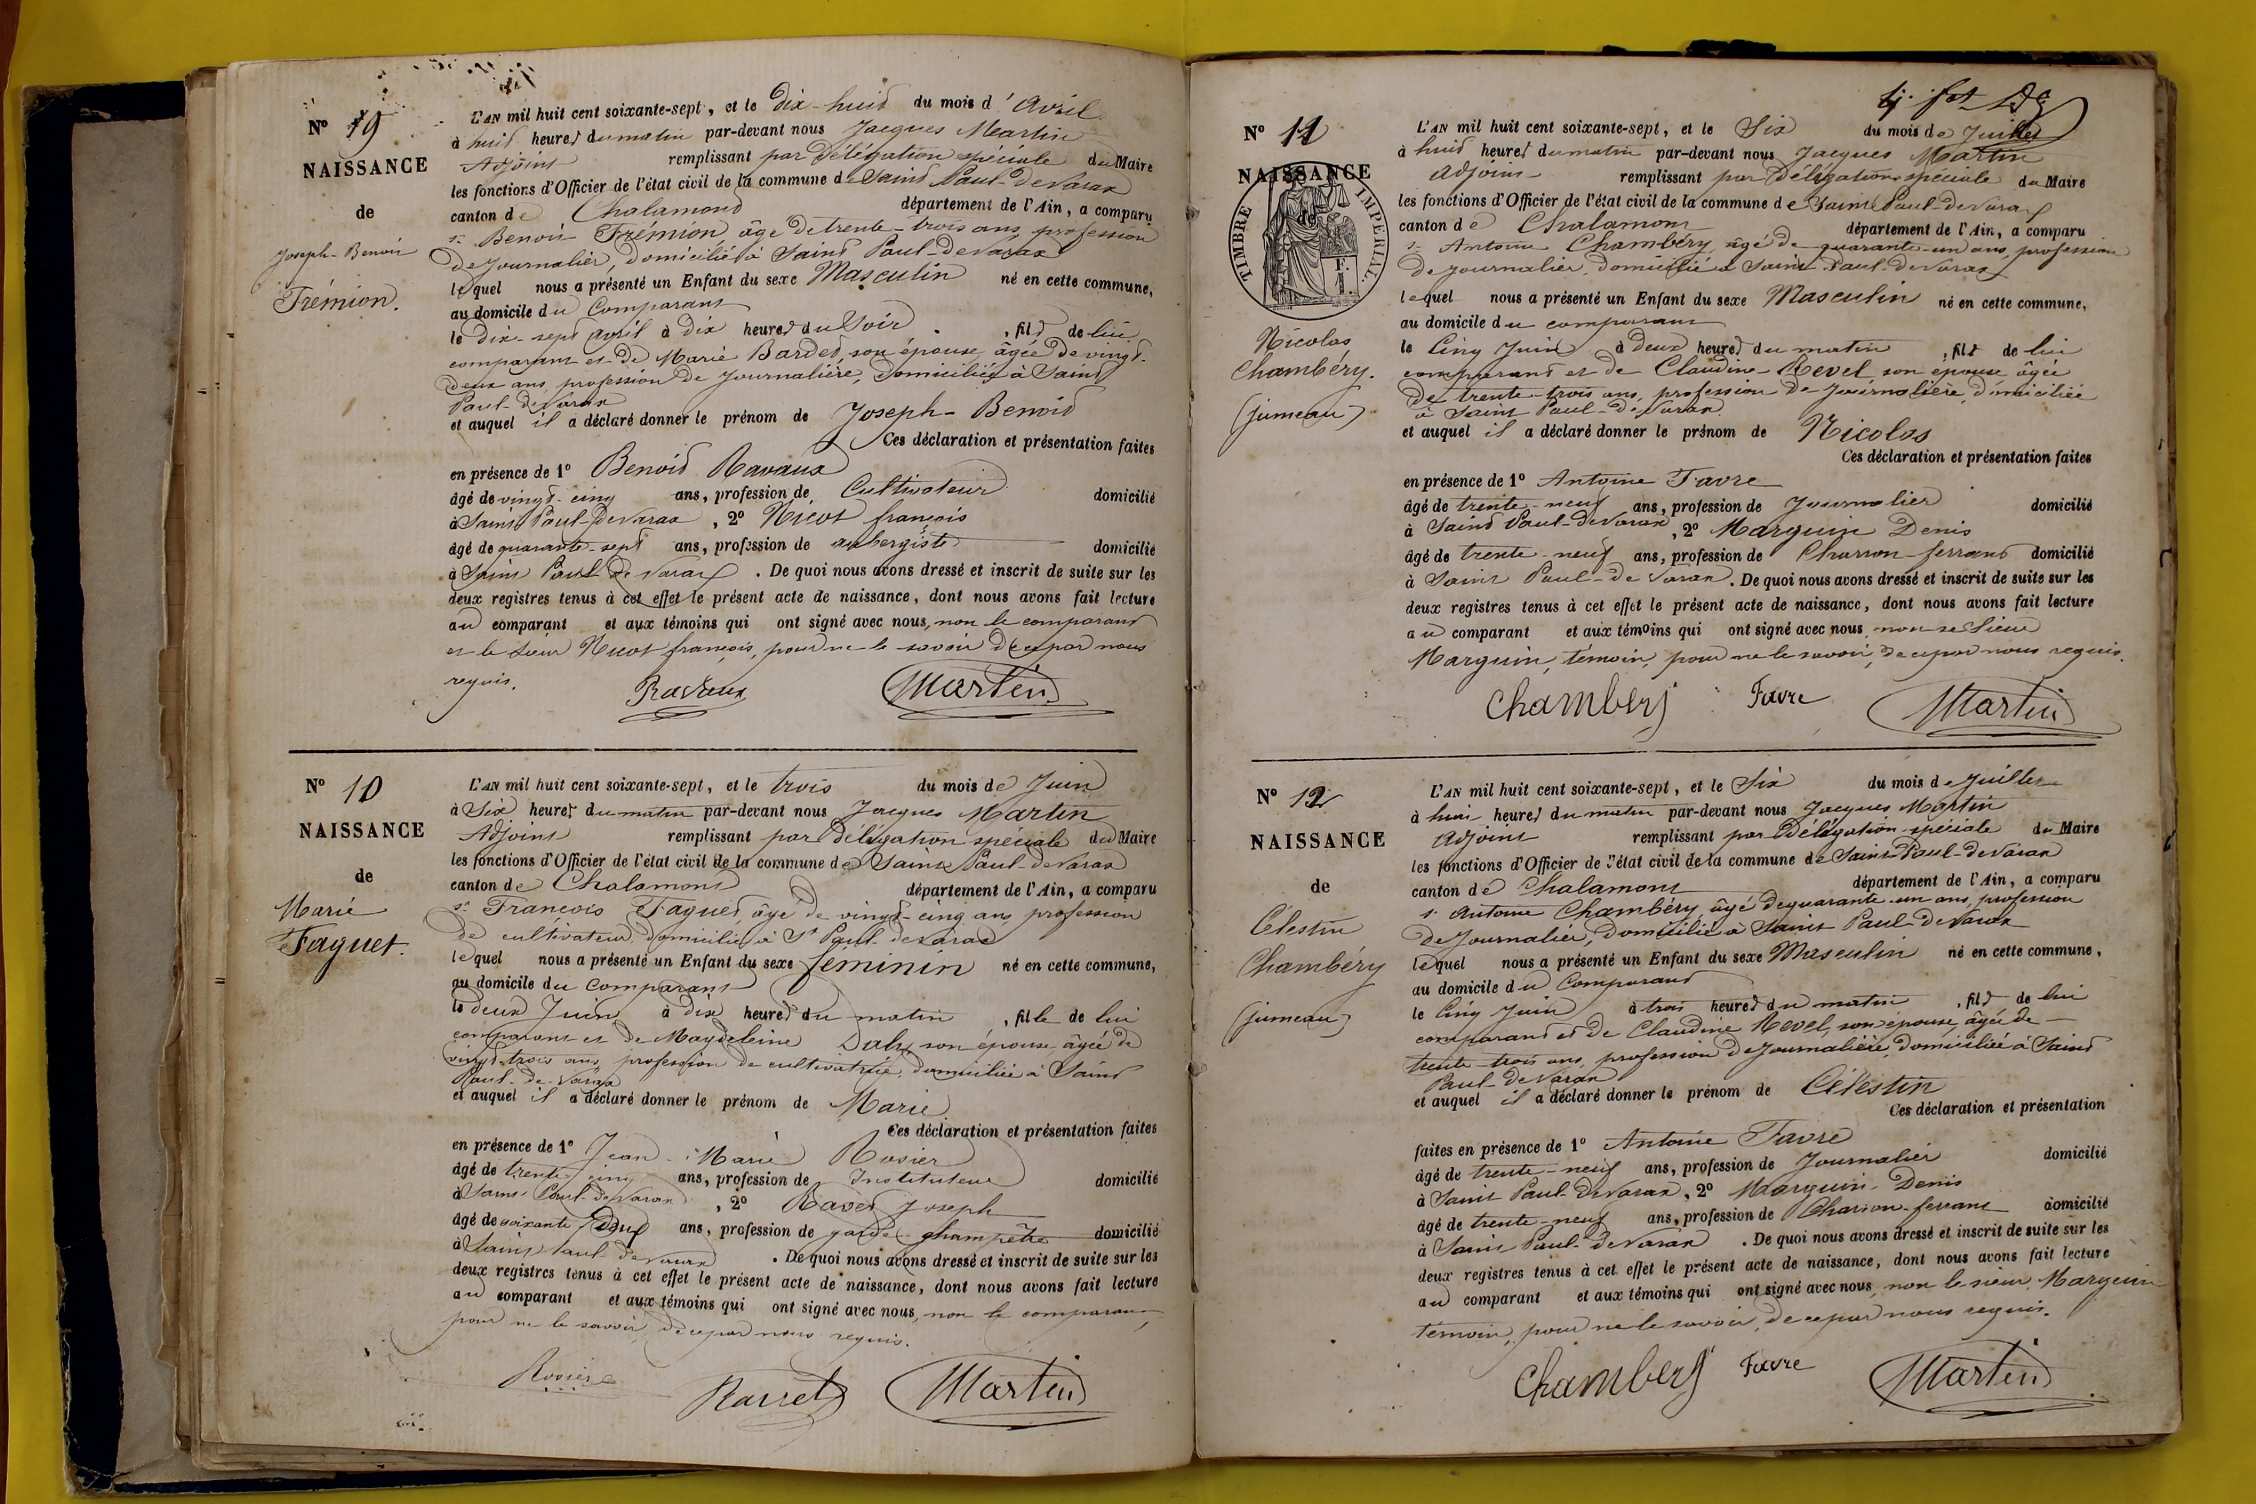 Nº 19
NAISSANCE
de
Joseph-Benoit
Frémion.
L'AN mil huit cent soixante-sept, et le dix-huit du mois d'Avril
à huit heures du matin par-devant nous Jacques Martin
Adjoint remplissant par délégation spéciale du Maire
les fonctions d'Officier de l'état civil de la commune de Saint Paul-de Varax
canton de Chalamont département de l'Ain, a comparu
sr Benoit Frémion, âgé de trente-trois ans, profession
de Journalier, domicilié à Saint Paul-de Varax
lequel nous a présenté un Enfant du sexe Masculin né en cette commune,
au domicile du Comparant
le dix-sept avril à dix heures du Soir, fils de lui
comparant et de Marie Bardet, son épouse, âgée de vingt-
deux ans, profession de Journalière, domiciliée à Saint
Paul-de Varax
et auquel il a déclaré donner le prénom de Joseph-Benoit
Ces déclaration et présentation faites
en présence de 1º Benoit Ravaux
âgé de vingt-cinq ans, profession de Cultivateur domicilié
à Saint Paul-de Varax, 2º Nicot françois
âgé de quarante-sept ans, profession de aubergiste domicilié
à Saint Paul de Varax. De quoi nous avons dressé et inscrit de suite sur les
deux registres tenus à cet effet le présent acte de naissance, dont nous avons fait lecture
au comparant et aux témoins qui ont signé avec nous, non le comparant
et le Sieur Nicot françois, pour ne le savoir de ce par nous
requis.
Ravaux Martin
Nº 10
NAISSANCE
de
Marie
Faguet.
L'AN mil huit cent soixante-sept, et le trois du mois de Juin
à Six heures du matin par-devant nous Jacques Martin
Adjoint remplissant par délégation spéciale du Maire
les fonctions d'Officier de l'état civil de la commune de Saint Paul-de Varax
canton de Chalamont département de l'Ain, a comparu
sr François Faguet, âgé de vingt-cinq ans, profession
de cultivateur domicilié à St Paul-de Varax
lequel nous a présenté un Enfant du sexe feminin né en cette commune,
au domicile du Comparant
le deux Juin à dix heures du matin, fille de lui
comparant et de Magdeleine son épouse, âgée de
vingt-trois ans, profession de cultivatrice, domiciliée à Saint
Paul-de-Varax
et auquel il a déclaré donner le prénom de Marie
Ces déclaration et présentation faites
en présence de 1º Jean-Marie Rosier
âgé de trente cinq ans, profession de Instituteur domicilié
à Saint Paul-de Varax, 2º Ravet Joseph
âgé de soixante ans, profession de garde-champêtre domicilié
à Saint Paul de Varax. De quoi nous avons dressé et inscrit de suite sur les
deux registres tenus à cet effet le présent acte de naissance, dont nous avons fait lecture
au comparant et aux témoins qui ont signé avec nous, non le comparant,
pour ne le savoir, de ce par nous requis.
Rosier Ravet Martin
Nº 11
NAISSANCE
de
TIMBRE IMPERIAL
Nicolas
Chambéry.
(jumeau)
L'AN mil huit cent soixante-sept, et le Six du mois de Juillet
à huit heures du matin par-devant nous Jacques Martin
Adjoint remplissant par Délégation spéciale du Maire
les fonctions d'Officier de l'état civil de la commune de Saint Paul-de Varax
canton de Chalamont département de l'Ain, a comparu
sr Antoine Chambéry, âgé de quarante-un ans, profession
de Journalier, domicilié à Saint Paul-de Varax
lequel nous a présenté un Enfant du sexe Masculin né en cette commune,
au domicile du comparant
le Cinq Juin à deux heures du matin, fils de lui
comparant et de Claudine Revel son épouse âgée
de trente-trois ans, profession de Journalière, domiciliée
à Saint Paul-de Varax
et auquel il a déclaré donner le prénom de Nicolas
Ces déclaration et présentation faites
en présence de 1º Antoine Favre
âgé de trente-neuf ans, profession de Journalier domicilié
à Saint Paul-de Varax, 2º Marguin Denis
âgé de trente-neuf ans, profession de Charron-ferrant domicilié
à Saint Paul-de Varax. De quoi nous avons dressé et inscrit de suite sur les
deux registres tenus à cet effet le présent acte de naissance, dont nous avons fait lecture
au comparant et aux témoins qui ont signé avec nous, non le Sieur
Marguin, témoin, pour ne le savoir, de ce par nous requis.
Chambery Favre Martin
Nº 12
NAISSANCE
de
Célestin
Chambéry
(jumeau)
L'AN mil huit cent soixante-sept, et le Six du mois de Juillet
à huit heures du matin par-devant nous Jacques Martin
Adjoint remplissant par Délégation spéciale du Maire
les fonctions d'Officier de l'état civil de la commune de Saint Paul-de Varax
canton de Chalamont département de l'Ain, a comparu
sr Antoine Chambéry, âgé de quarante-un ans, profession
de Journalier, domicilié à Saint Paul de Varax
lequel nous a présenté un Enfant du sexe Masculin né en cette commune,
au domicile du Comparant
le Cinq Juin à trois heures du matin, fils de lui
comparant et de Claudine Revel, son épouse, âgée de
trente-trois ans, profession de Journalière, domiciliée à Saint
Paul-de Varax
et auquel il a déclaré donner le prénom de Célestin
Ces déclaration et présentation
faites en présence de 1º Antoine Favre
âgé de trente-neuf ans, profession de Journalier domicilié
à Saint Paul-de Varax, 2º Marguin Denis
âgé de trente-neuf ans, profession de Charron-ferrant domicilié
à Saint Paul-de Varax. De quoi nous avons dressé et inscrit de suite sur les
deux registres tenus à cet effet le présent acte de naissance, dont nous avons fait lecture
au comparant et aux témoins qui ont signé avec nous, non le sieur Marguin
témoin, pour ne le savoir, de ce par nous requis.
Chambery Favre Martin